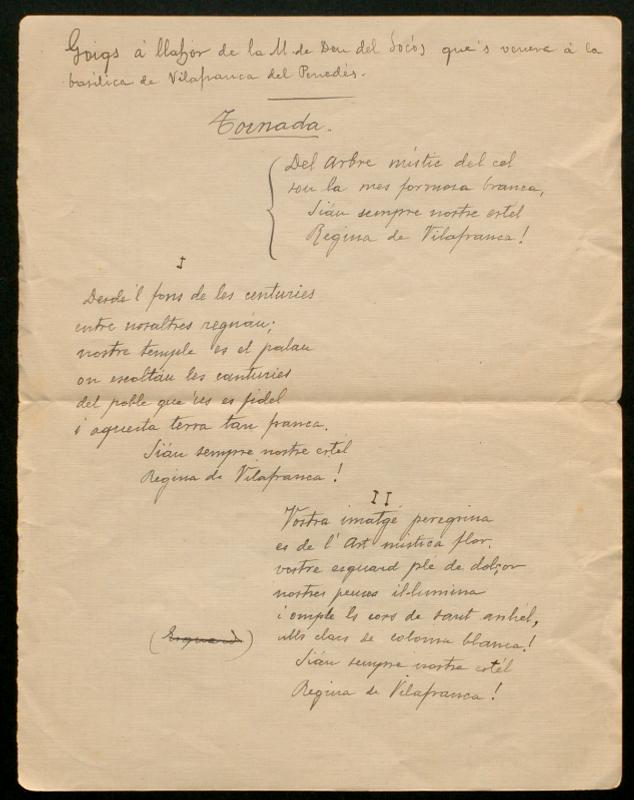 Goigs á llahor de la M. de Deu del Socós que's venera á la
basílica de Vilafranca del Penedés.
Tornada.
Del Arbre místic del cel
sou la mes formosa branca,
Siáu sempre nostre estel
Regina de Vilafranca!
I
Desde'l fons de les centuries
entre nosaltres regnáu;
nostre temple es el palau
on escoltáu les canturies
del poble que'us es fidel
i aquesta terra tan franca.
Siáu sempre nostre estel
Regina de Vilafranca!
II
Vostra imatge peregrina
es de l'Art mística flor,
vostre esguard plé de dolçor
nostres penses il-lumina
i omple ls cors de sant anhel,
ulls clars de coloma blanca!
(Esguard)
Siáu sempre nostre estél
Regina de Vilafranca!